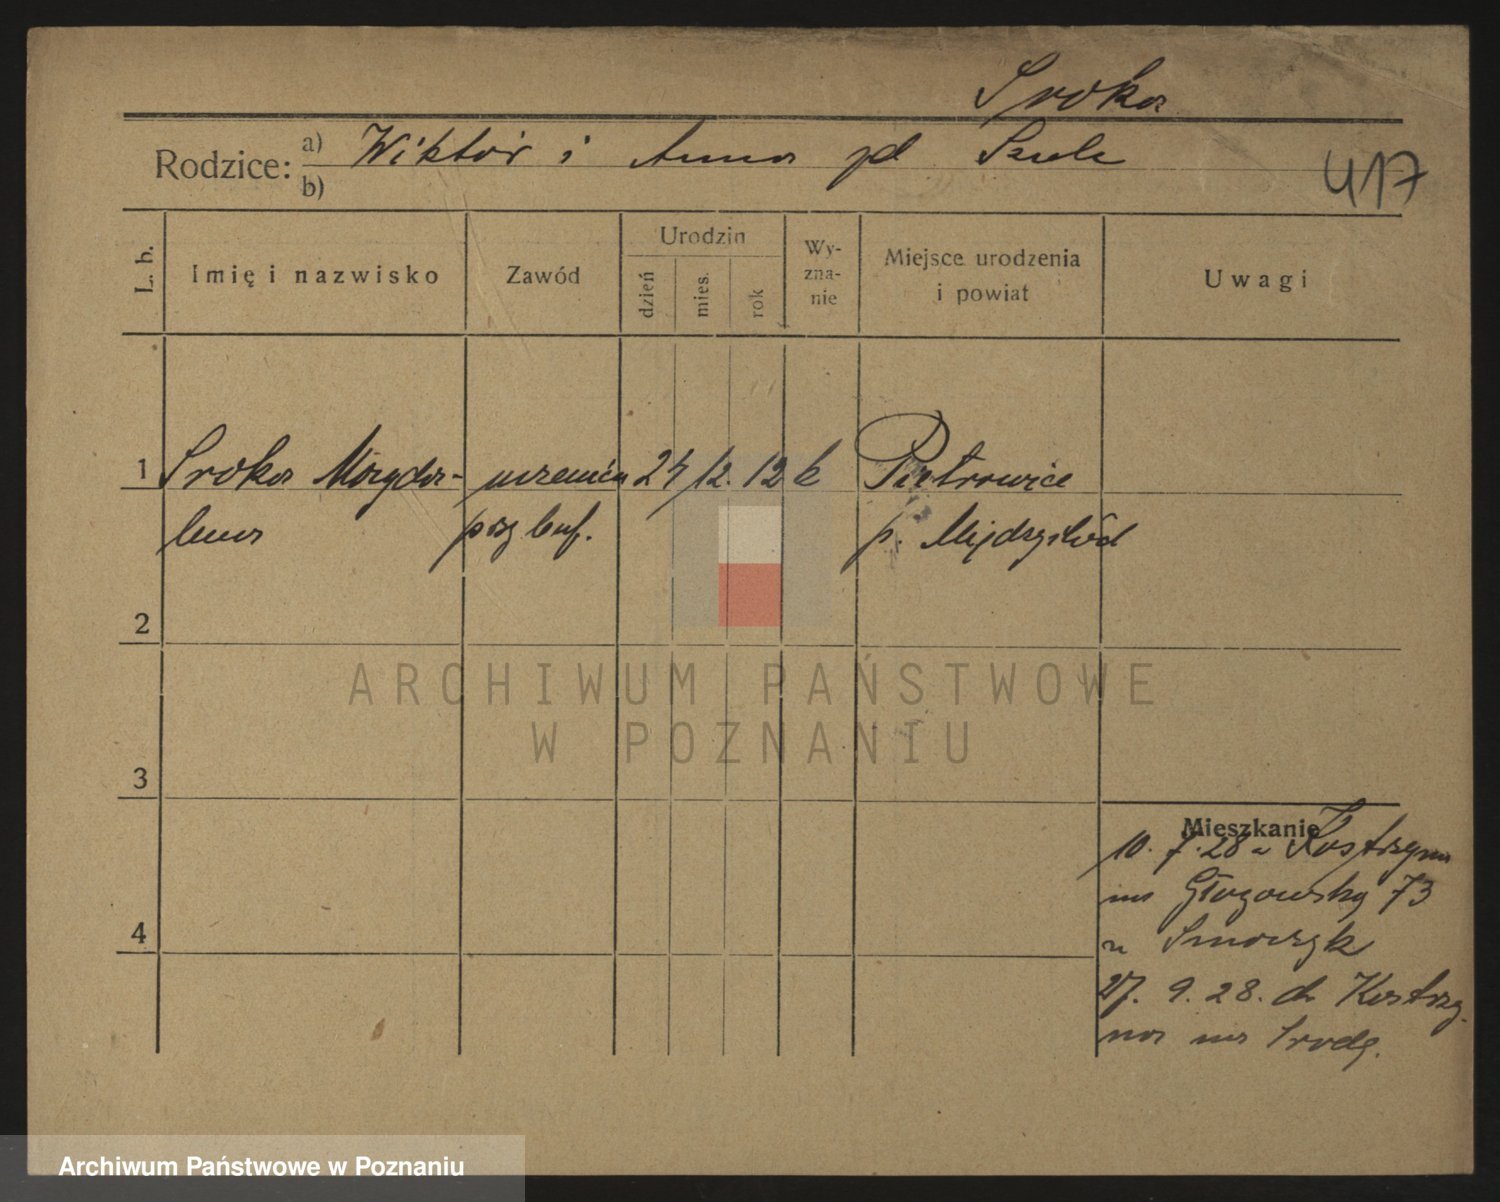 Sroka
Rodzice: a) Wiktór i Anna
b)
417
L. b.
Imię i nazwisko
Zawód
Urodzin
dzień
mies.
rok
Wy-
zna-
nie
Miejsce urodzenia
i powiat
Uwagi
1 Sroka Magda- uczenica 24 12. 12 k Piotrowice
lena przy buf. p. Międzychód
2
3
4
Mieszkanie
10. 7. 28 z Kostrzyna
na Głogowską 73
u Smoczyk
27. 9. 28. do Kostrzy-
na na Środę.
ARCHIWUM PAŃSTWOWE
W POZNANIU
Archiwum Państwowe w Poznaniu